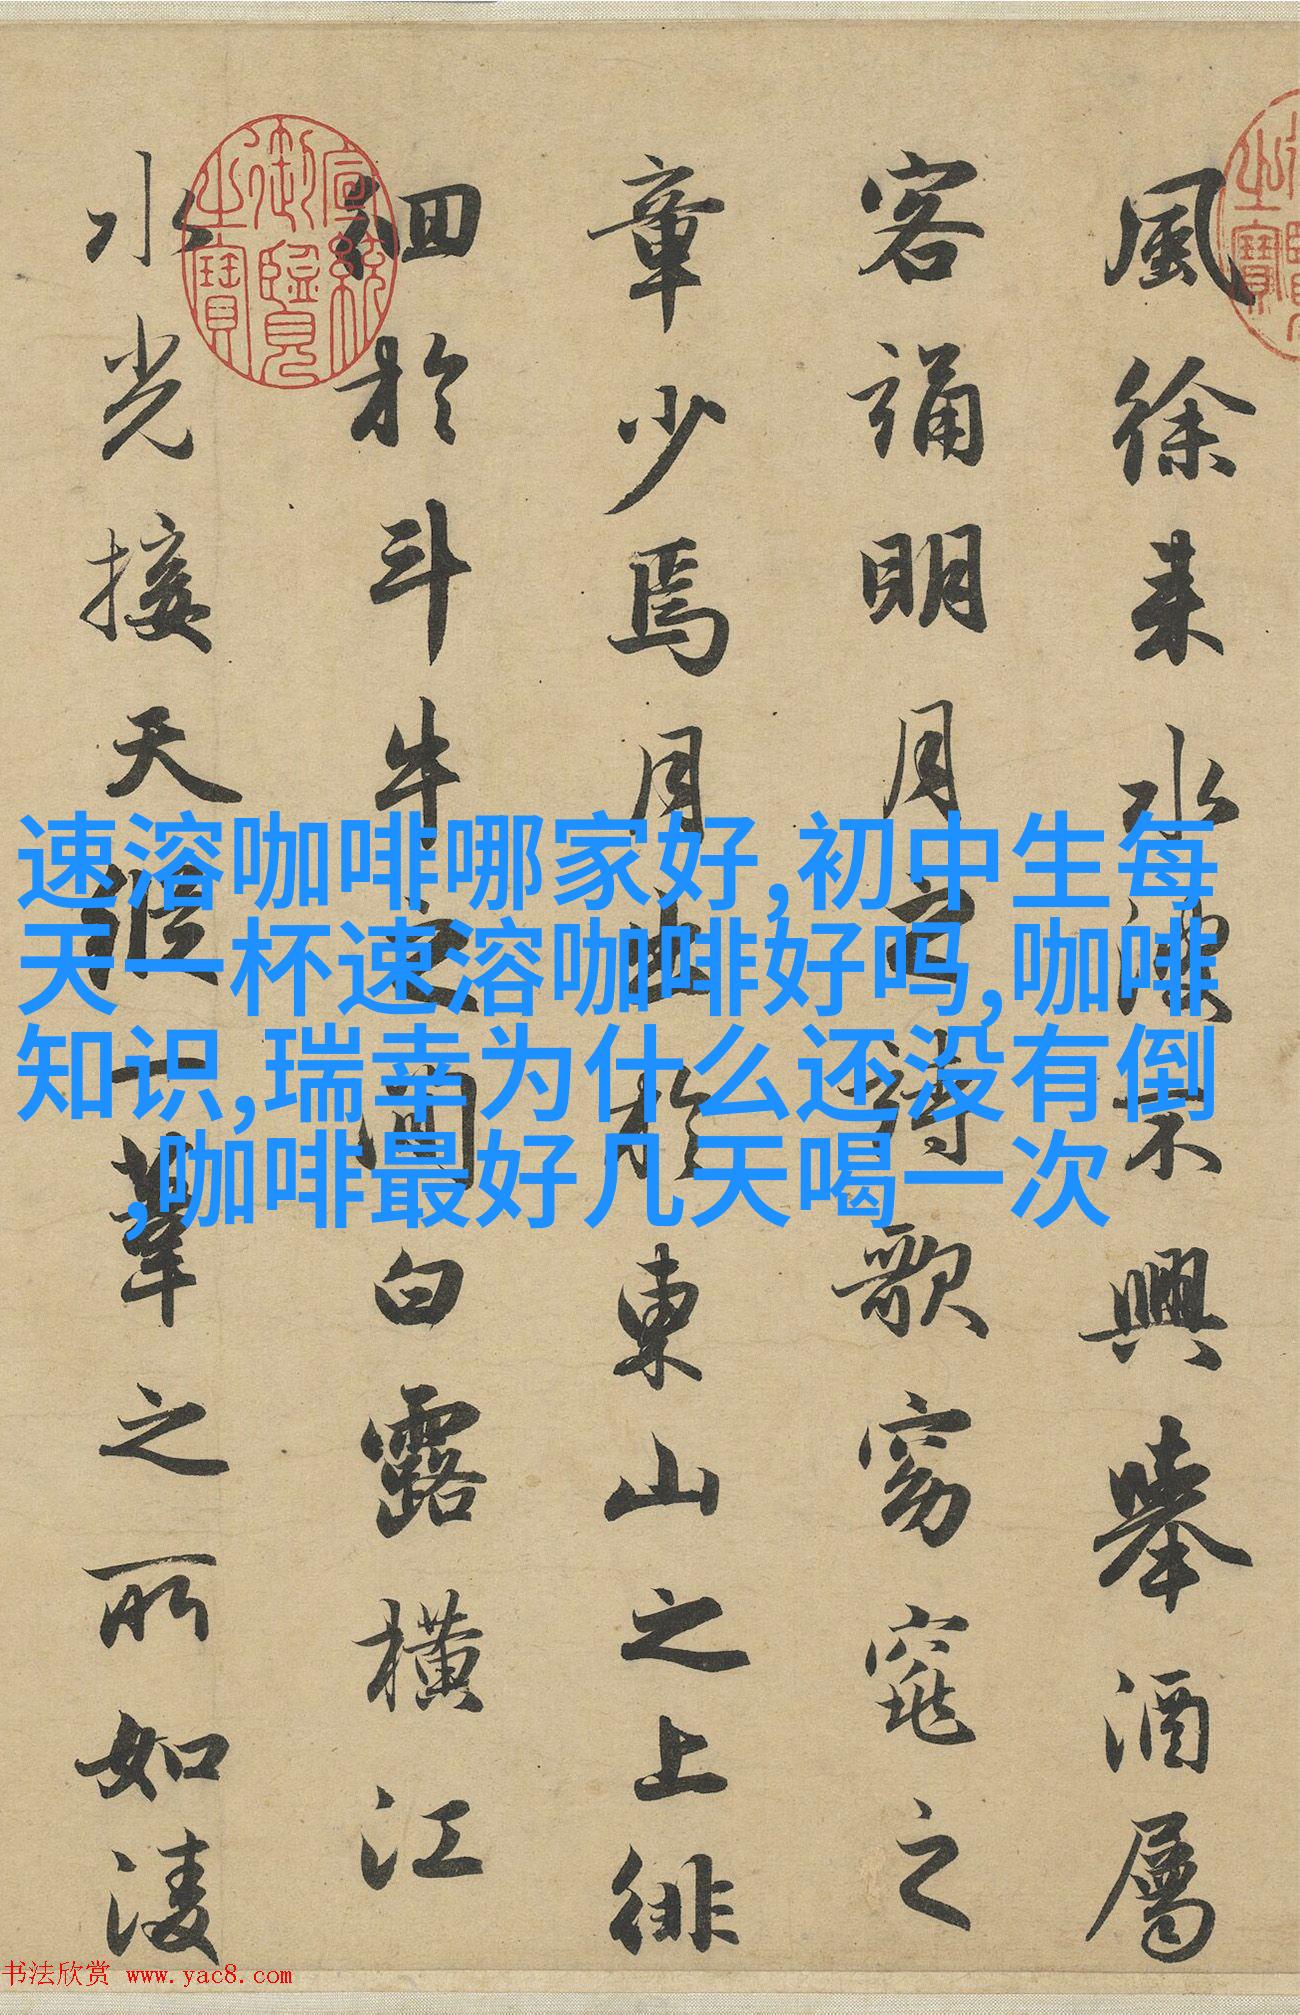 風徐来水波不興舉酒屬
客誦明月之詩歌窈窕之
章少焉月出於東山之上徘
徊於斗牛之間白露橫江
水光接天縱一葦之所如淩
宣統御覽之寶
速溶咖啡哪家好,初中生每
天一杯速溶咖啡好吗,咖啡
知识,瑞幸为什么还没有倒
,咖啡最好几天喝一次
书法欣赏 www.yac8.com